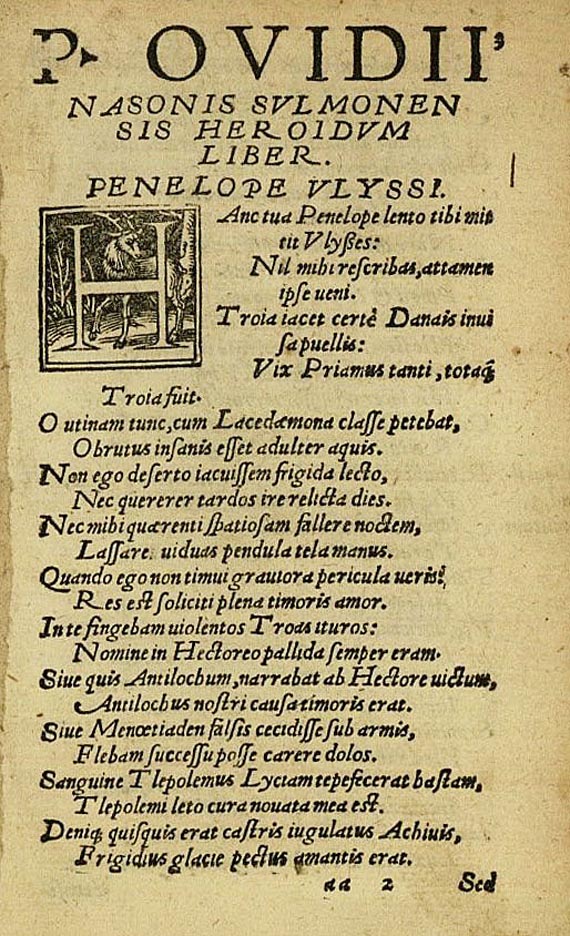 P. OVIDII
NASONIS SVLMONEN
SIS HEROIDVM
LIBER.
PENELOPE VLYSSI.
HAnc tua Penelope lento tibi mit
tit Vlyßes:
Nil mihi rescribas, attamen
ipse ueni.
Troia iacet certè Danais inui
sa puellis:
Vix Priamus tanti, totaq;
Troia fuit.
O utinam tunc, cum Lacedæmona classe petebat,
Obrutus insanis esset adulter aquis.
Non ego deserto iacuissem frigida lecto,
Nec quererer tardos ire relicta dies.
Nec mihi quærenti spatiosam fallere noctem,
Lassare uiduas pendula tela manus.
Quando ego non timui grauiora pericula ueris?
Res est soliciti plena timoris amor.
In te fingebam uiolentos Troas ituros:
Nomine in Hectoreo pallida semper eram.
Siue quis Antilochum, narrabat ab Hectore uictum,
Antilochus nostri causa timoris erat.
Siue Menœtiaden falsis cecidisse sub armis,
Flebam successu posse carere dolos.
Sanguine Tlepolemus Lyciam tepefecerat hastam,
Tlepolemi leto cura nouata mea est.
Deniq; quisquis erat castris iugulatus Achiuis,
Frigidius glacie pectus amantis erat.
aa 2 Sed